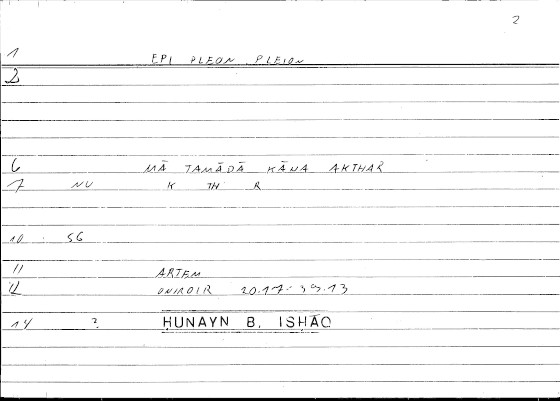 2
1 EPI PLEON PLEION
2
6 MĀ TAMĀDĀ KĀNA AKTHAR
7 NU K TH R
10 56
11 ARTEM
12 ONIROIR 20.17-39.13
14 ? HUNAYN B. ISHĀQ